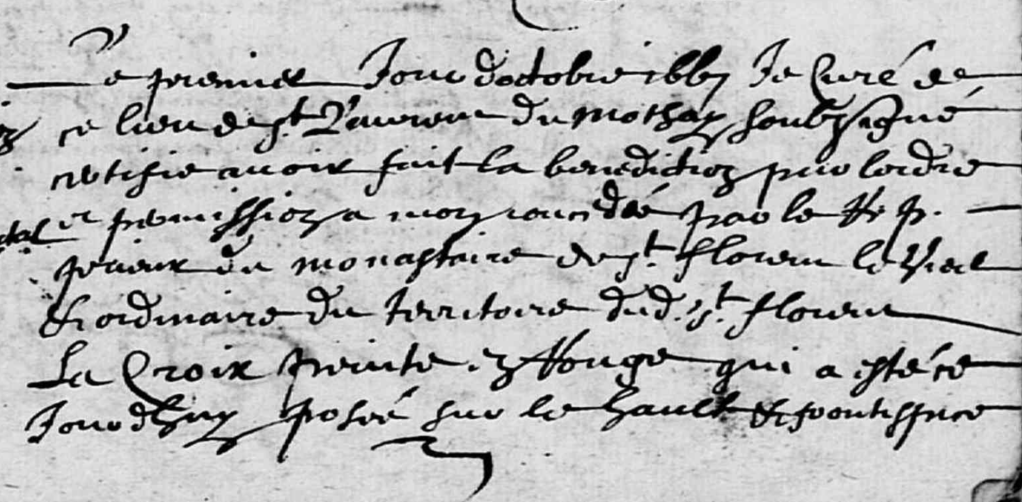 Le premier Jour doctobre 1667 Je Curé de
ce lieu de st Laurent du mothay soubzsigné
certifie avoir fait la benediction par lordre
et permission a moy concedée par le R p.
prieur du monastaire de st. florent le Vieil
& ordinaire du territoire dud. st florent
La Croix peinte Rouge qui a esté ce
Jourdhuy posée sur le hault &